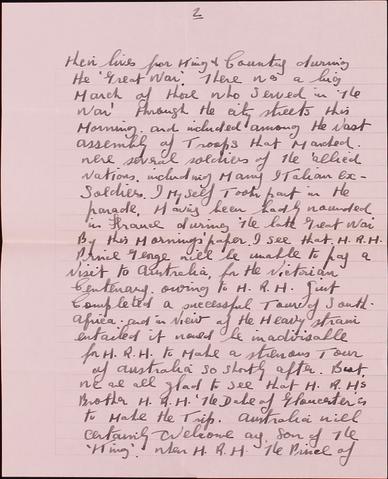 2
their lives for King & Country during
the 'Great War'. There was a big
March of those who Served in 'The
War' through the city streets this
Morning. and included among the vast
assembly of Troops that Marched.
were several soldiers of the allied
Nations. including Many Italian ex-
Soldiers. I Myself Took part in the
parade, Having been badly wounded
in France during 'The late Great War'
By this Morning's paper, I see that H.R.H.
Prince George will be unable to pay a
Visit to Australia, for the Victorian
Centenary. owing to H.R.H. Just
Completed a successful Tour of South
Africa. and in View of the Heavy strain
entailed it would be inadvisable
for H.R.H. to Make a strenuous Tour
of Australia so shortly after. But
we are all glad to see that H.R.H's
Brother H.R.H. 'The Duke of Gloucester' is
to Make the Trip. Australia will
certainly Welcome any Son of The
'King'. when H.R.H. The Prince of